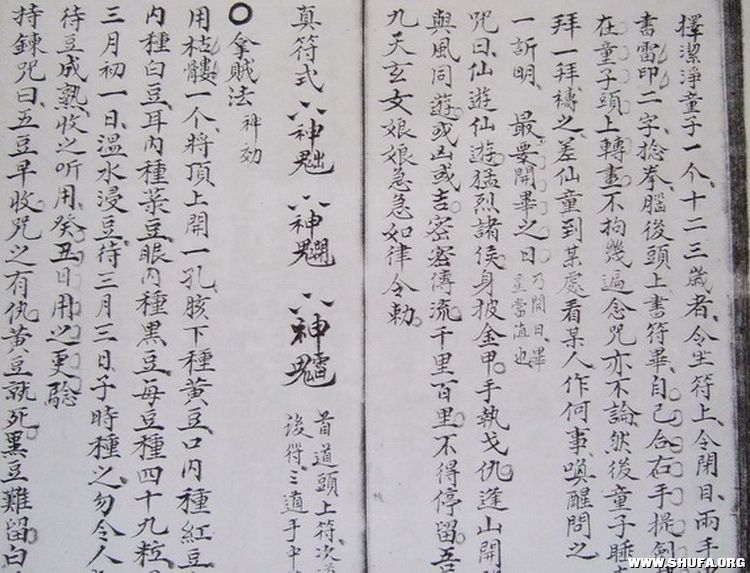 擇潔淨童子一个、十二三歲者、令坐符上、令閉目、兩手
書雷印二字、捻拳、腦後頭上書符畢、自己合右手提劍
在童子頭上轉畫、不拘幾遍、念咒亦不論、然後童子睡
拜一拜、禱之、差仙童到某處看某人作何事、喚醒問之
一訢明、最要開畢之日
乃開日、畢
星當值也
咒曰、仙遊仙遊、猛烈諸侯、身披金甲、手執戈仇、逢山開
與風同遊、或凶或吉、密密傳流、千里百里、不得停留、五
九天玄女娘娘急急如律令勅
真符式
首道頭上符、次道
後符、三道手中
拿賊法 神効
用枯髏一个、將頂上開一孔、胲下種黃豆、口內種紅豆
內種白豆、耳內種菜豆、眼內種黑豆、每豆種四十九粒
三月初一日、溫水浸豆、待三月三日、子時種之、勿令人
待豆成熟、收之听用、癸丑日用之更驗
持鍊咒曰、五豆早收、咒之有仇、黃豆孰死、黑豆難留、白
WWW.SHUFA.ORG